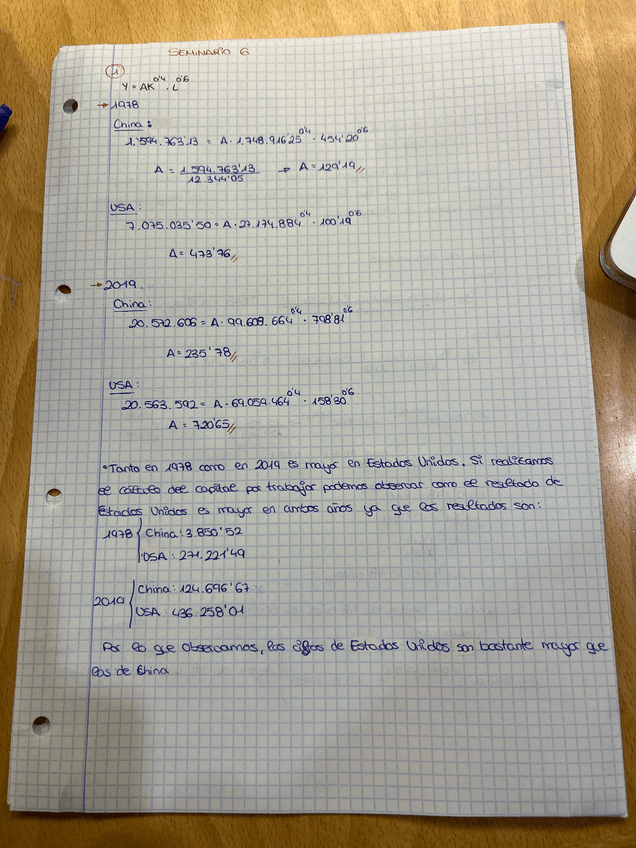 SEMINARIO 6
1
Y = AK^0'4 · L^0'6
→ 1978
China:
1.'594.763'13 = A · 1.748.916'25^0'4 · 454'20^0'6
A = 1.594.763'13 / 12.344'05 → A = 129'19
USA:
7.075.035'50 = A · 27.174.884^0'4 · 100'19^0'6
A = 473'76
→ 2019.
China:
20.572.606 = A · 99.608.664^0'4 · 798'81^0'6
A = 235'78
USA:
20.563.592 = A · 69.059.464^0'4 · 158'30^0'6
A = 720'65
•Tanto en 1978 como en 2019 es mayor en Estados Unidos. Si realizamos
el cálculo del capital por trabajor podemos observar como el resultado de
Estados Unidos es mayor en ambos años ya que los resultados son:
1978 { China: 3.850'52
USA: 271.221'49
2019 { China: 124.696'67
USA: 436.258'01
Por lo que observamos, las cifras de Estados Unidos son bastante mayor que
las de China